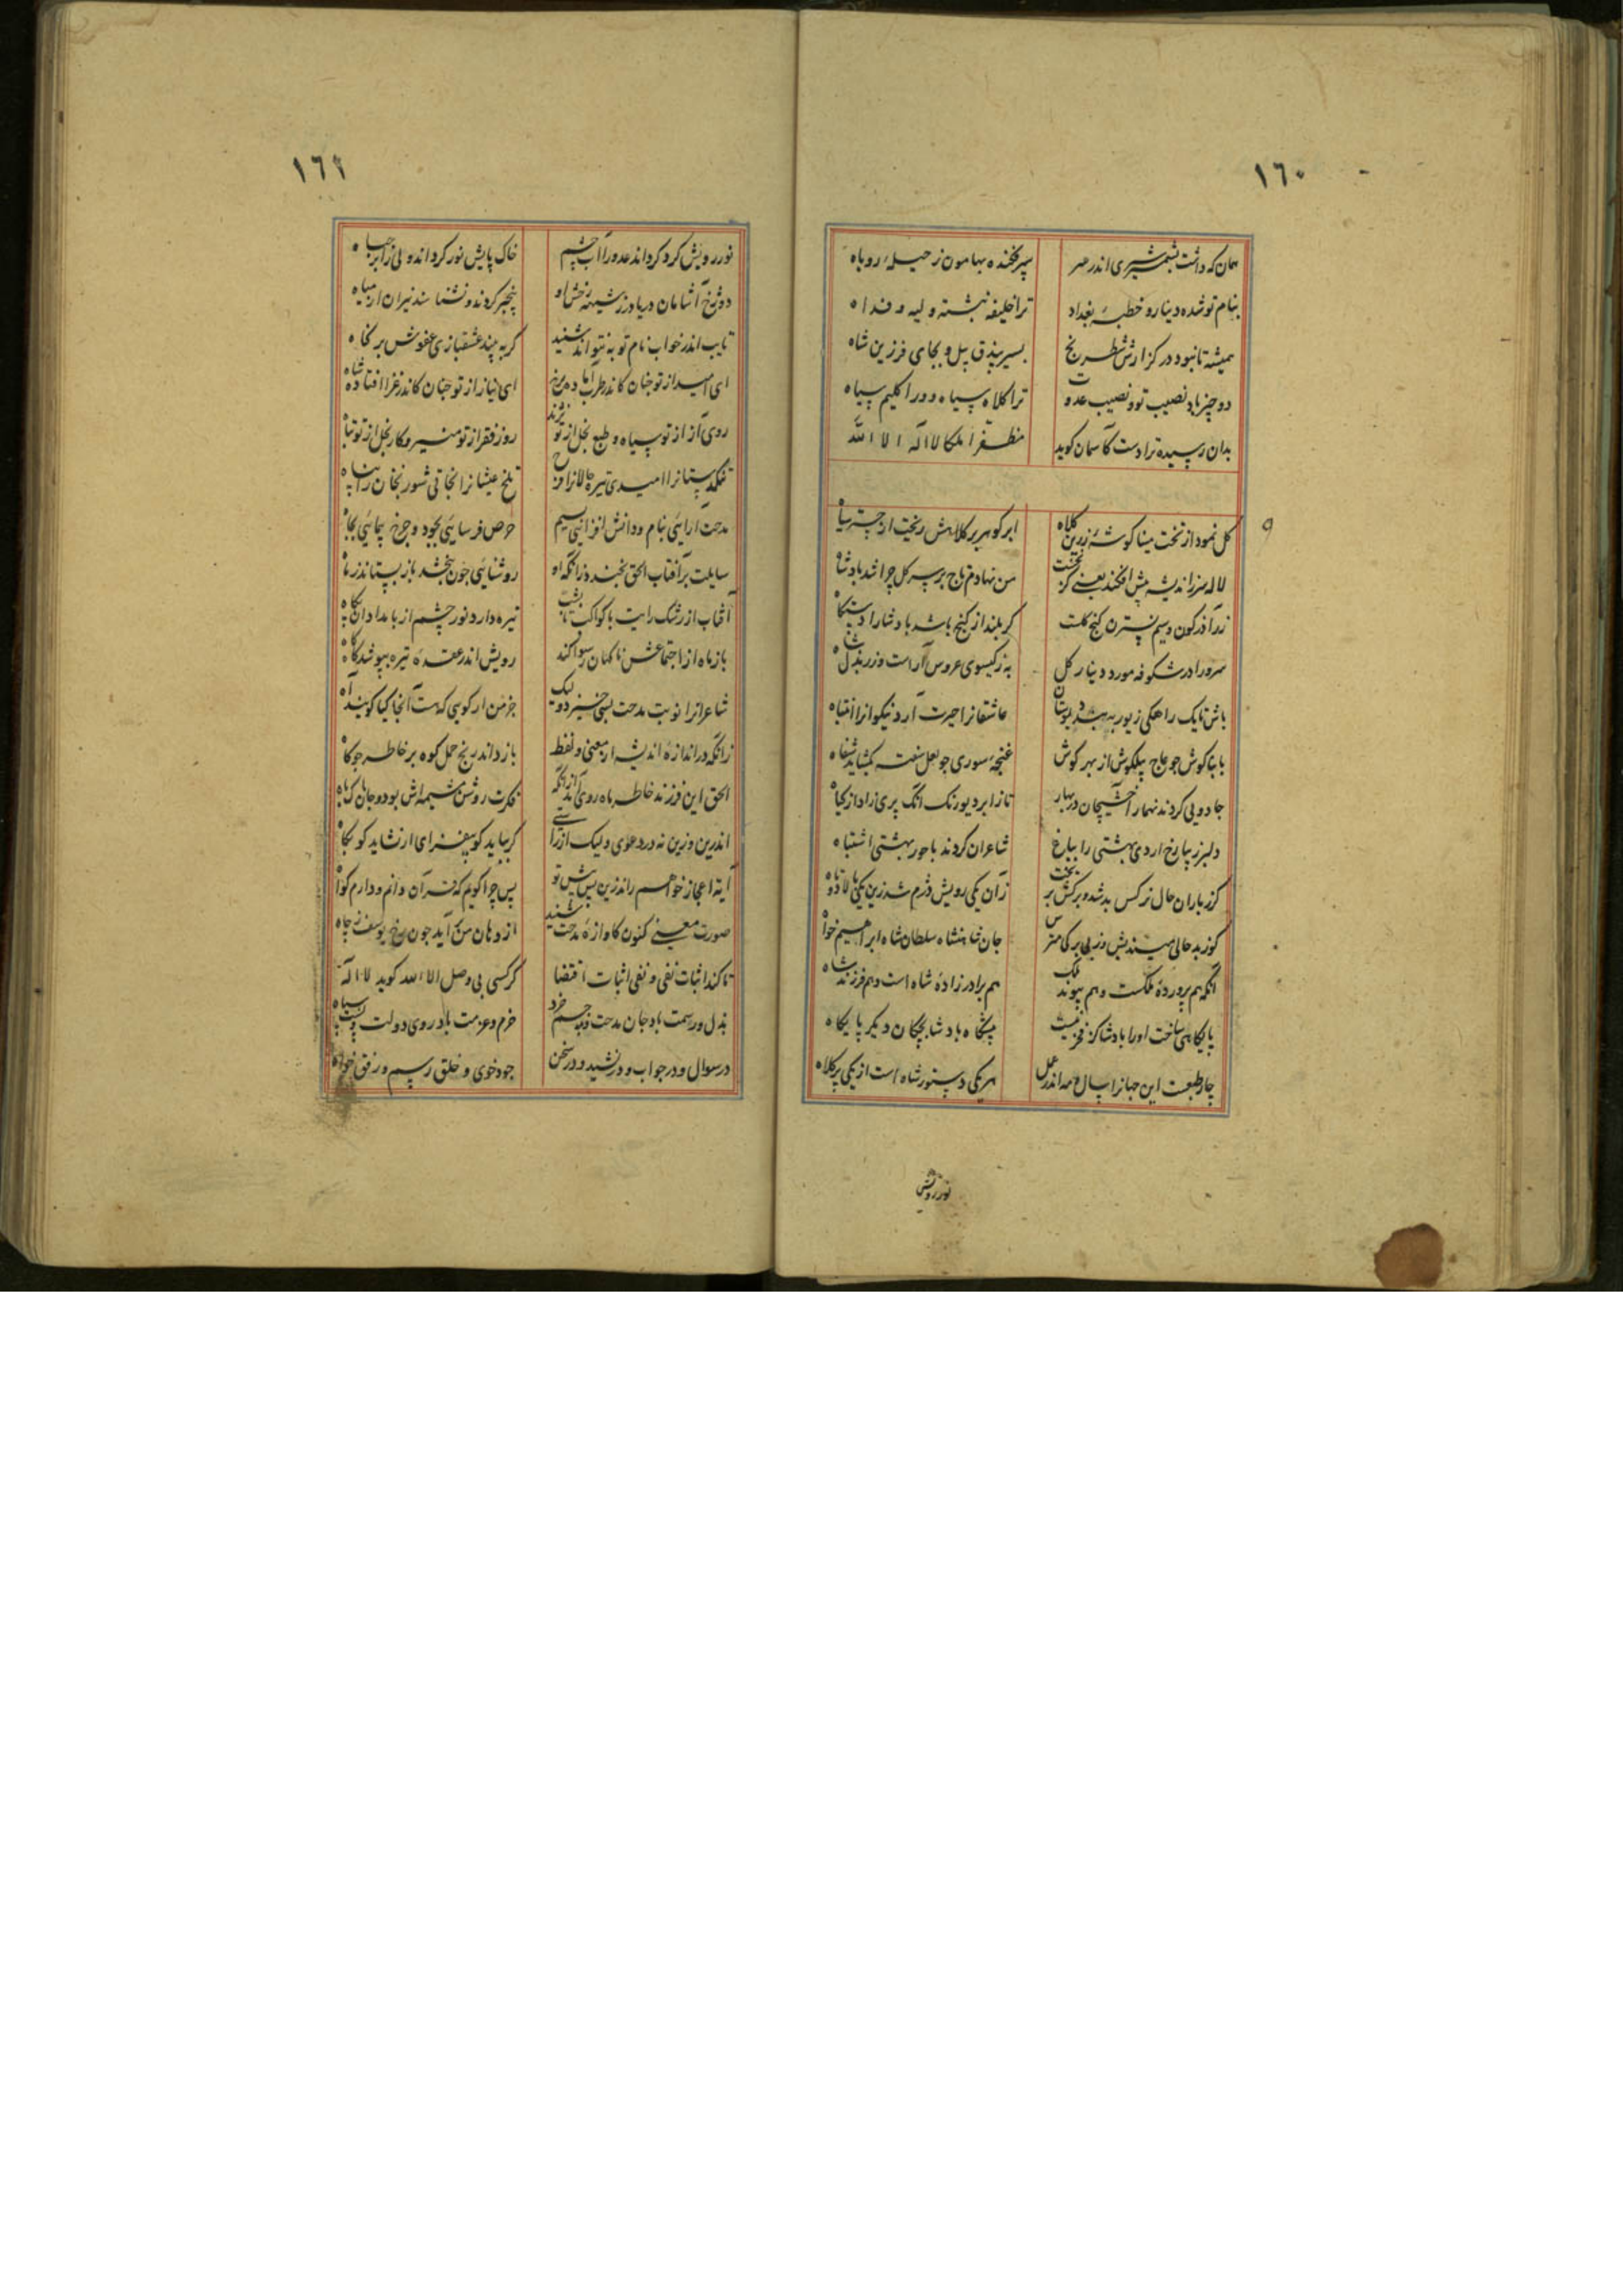 ١٦٠
همان که داشت بشمشیری اندر سر
سپر فکنده بهامون ز حیله روباه
بنام تو شده دینار و خطبه بغداد
ترا خلیفه نبشته ولیه و فداه
همیشه تا نبود در گزارش شطرنج
بسیر بیذق پیل و بجای فرزین شاه
دو چیز باد نصیب تو و نصیب عدوت
ترا کلاه سیاه و ورا گلیم سیاه
بدان رسیده ترا دست کاسمان کوید
مظفرا ملکا لا اله الا الله
کل نمود از تخت مینا کوشه زرین کلاه
ابر کوهر بر کلاهش ریخت از چتر سیاه
لاله سر ز اندیشه پیش افکند یعنی کز نخست
من نهادم تاج بر سر کل چرا شد بادشاه
زر آذرکون و سیم نسترن کنج کلست
کر بلند از کنج باشد بادشا را دستکاه
سرو را در شکوفه مورد دینار کل
به ز کیسوی عروس آراست وز بذل شاه
باش تا یک راهکی زیور به بندد بوستان
عاشقانرا حیرت آرد نیکوانرا انتباه
با بناکوش جو عاج پیلکوش از بهر کوش
غنجه سوری جو لعل سفته بکشاید شفاه
جادویی کردند نهمار آخشیجان در بهار
تا ز ابر دیورنک آنک پری زاد از کیاه
دلبر زیبا رخ اردی بهشتی را بباغ
شاعران کردند با حور بهشتی اشتباه
کز باران حال نرکس بد شد و برکش بریخت
زان یکی رویش دژم شد زین یکی بالا دوتاه
کوز بد حالی میندیش وز بی برکی مترس
جان شاهنشاه سلطان شاه ابراهیم خواه
آنکه هم پرورده ملکست و هم پیوند ملک
هم برادرزاده شاه است و هم فرزند شاه
پایکاهی ساخت او را بادشا کز فر نیست
پیشکاه بادشا بچکان دیکر پایکاه
چار طبعت این جهانرا سال و مه اندر عمل
هر یکی دستور شاه است از یکی پر کلاه
نور رویش
١٦١
نور رویش کرد کرداند عدو را آب چشم
خاک پایش نور کرداند ولی را بر جباه
دوزخ آشامان دریا در ز شیهه رخش او
پنجبر کردند و نشناسند نیران از میاه
تایب اندر خواب نام تو به نتواند شنید
کر به بیند عشقبازی عفوش بر کناه
ای امید از تو جنان کاندر طرب آباده مرغ
ای نیاز از تو جنان کاندر غزا افتاده شاه
روی آز از تو سیاه و طبع بخل از تو نژند
روز فقر از تو منیر و کار بخل از تو تباه
تنکدستانرا امیدی تیره حالانرا فرح
تلخ عیشانرا نجاتی شور بختانرا پناه
مدحت آرایئی بنام و دانش افزائیی بسیم
حرص فرسایئی بجود و چرخ پیمایئی بجاه
سایلت بر آفتاب الحق نخندد زانکه او
روشنایی جون ببخشد باز بستاند ز ماه
آفتاب از رشک رایت با کواکب تافت پشت
تیره دارد نور چشم از بامدادان پکاه
باز ماه از اجتماعش ناکهان رسوا کند
رویش اندر عقده تیره بپوشد کاه کاه
شاعرانرا نوبت مدحت بسی خیزد ولیک
جز من ار کویی که هست آنجا کیا کویند آه
زانکه در اندازه اندیشه از معنی و لفظ
باز داند رنج حمل کوه بر خاطر جو کاه
الحق این فرزند خاطر ماه روی آمد از آنکه
فکرت روشن مشیمه اش بود و جان پاک باه
اندرین وزین نه در دعوی ولیک از راستی
کر بباید کو بیفزای ار نشاید کو بکاه
آیة اعجاز خواهم راند زین پس پیش تو
پس چرا کویم که قرآن دانم و دارم کواه
صورت معنی کنون کاوازه مدحت شنید
از دهان من آید جون رخ یوسف ز چاه
تا کند اثبات نفی و نفی اثبات اقتضا
کر کسی بی وصل الا الله کوید لا اله
بذل و رسمت باد جان مدحت و جسم خرد
حزم و عزمت باد روی دولت و پشت سپاه
در سوال و در جواب و در نشید و در سخن
جود خوی و خلق رسم و رزق خواه